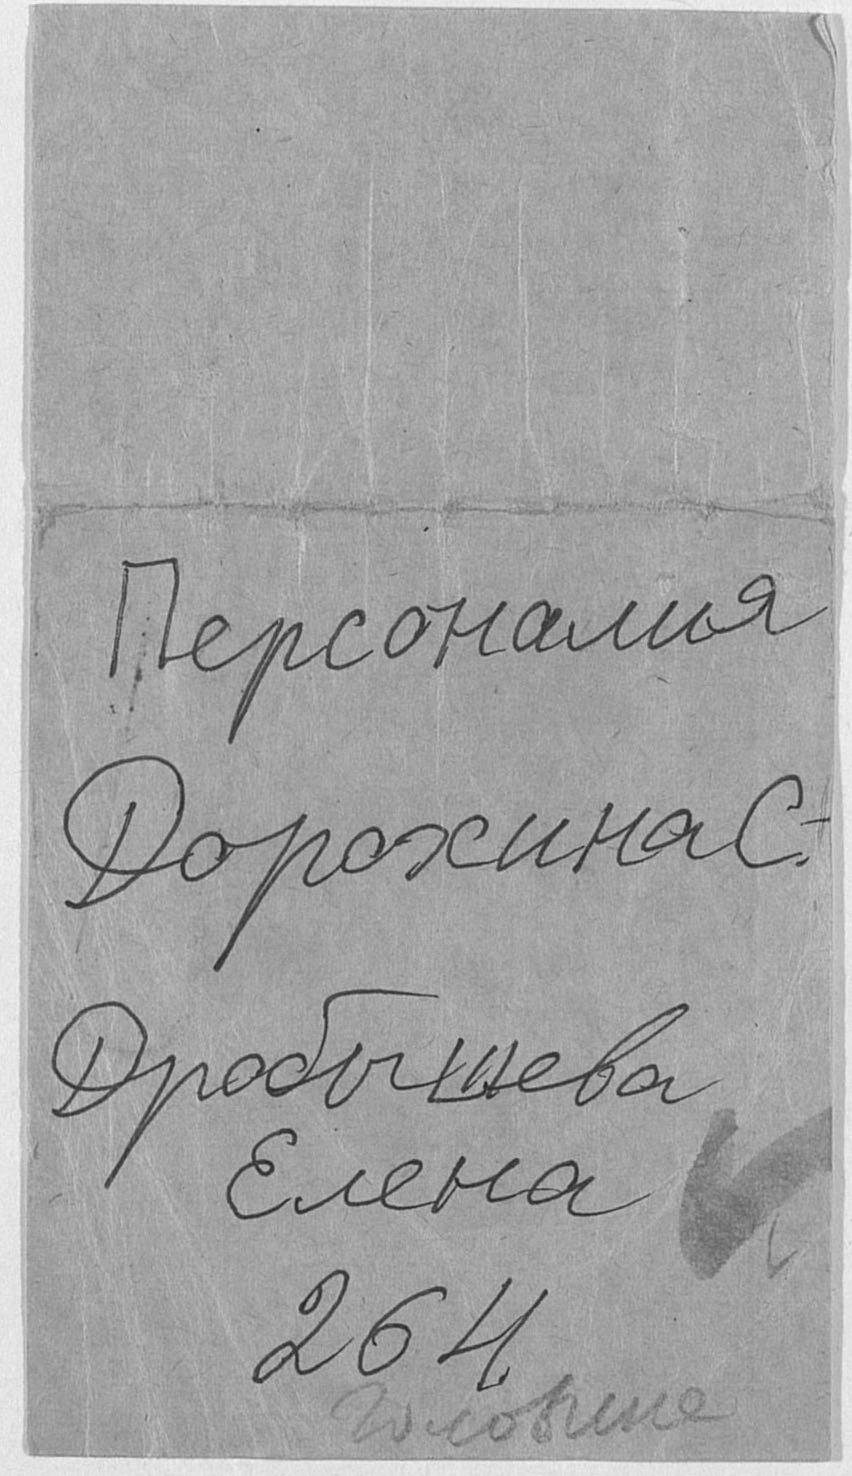 Персоналия
Дорожина С.
Дробышева
Елена
264